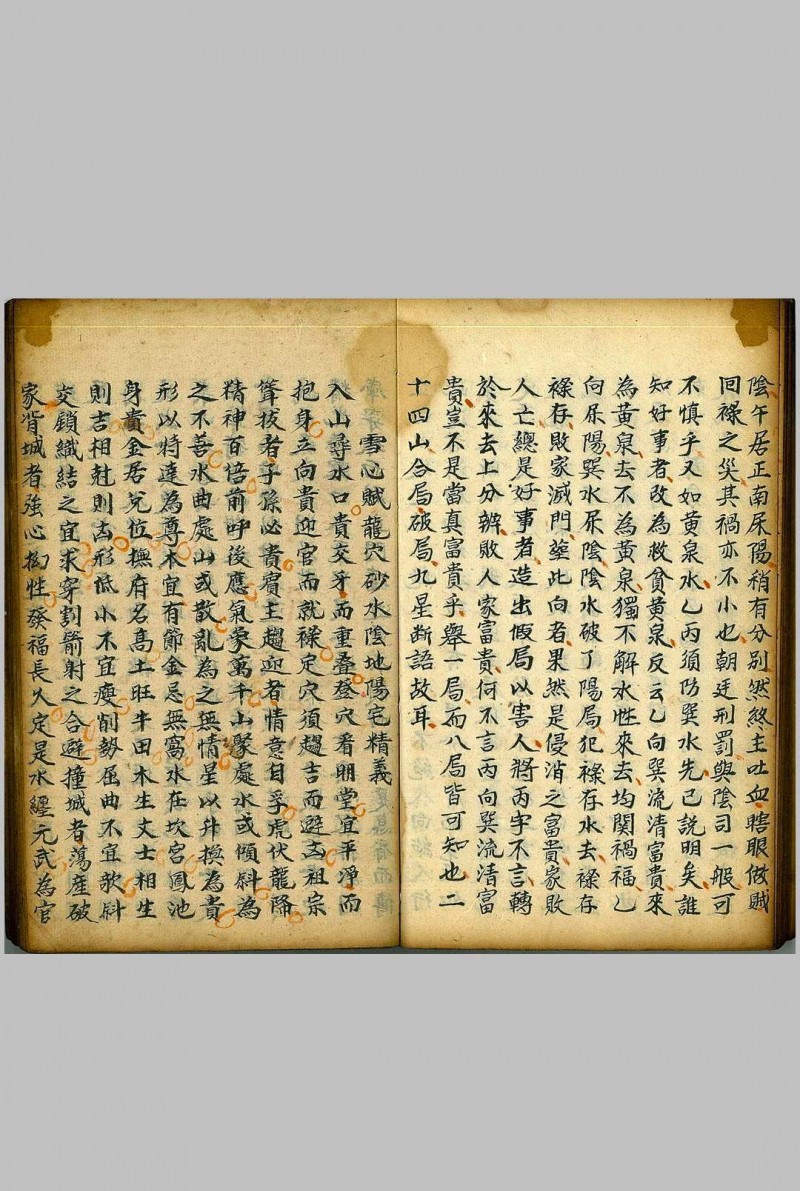 陰午居正南屎陽稍有分別然終主吐血瞎眼做賊
回祿之災其禍亦不小也朝廷刑罰與陰司一般可
不慎乎又如黃泉水乙丙須防巽水先已說明矣誰
知好事者改為救貧黃泉反云乙向巽流清富貴來
為黃泉去不為黃泉獨不解水性來去均関禍福乙
向屎陽巽水屎陰陰水破了陽局犯祿存水去祿存
祿存敗家滅門塟此向者果然是侵消之富貴家敗
人亡總是好事者造出假局以害人將丙字不言轉
於來去上分辦敗人家富貴何不言丙向巽流清富
貴豈不是當真富貴乎舉一局而八局皆可知也二
十四山合局破局九星断語故耳
雪心賦龍穴砂水陰地陽宅精義
入山尋水口貴交牙而重疊登穴看明堂宜平淨而
抱身立向貴迎官而就祿定穴須趨吉而避凶祖宗
聳拔者子孫必貴賓主趨迎者情意自孚虎伏龍降
精神百倍前呼後應氣象萬千山聚處水或傾斜為
之不善水曲處山或散亂為之無情星以升換為貴
形以特達為尊木宜有節金忌無窩水在坎宮鳳池
身貴金居兌位撫府名高土旺牛田木生文士相生
則吉相尅則凶形低小不宜瘦削勢屈曲不宜欹斜
交鎖織結之宜求穿割箭射之合避撞城者蕩產破
家背城者強心拗性發福長久定是水纏元武為官